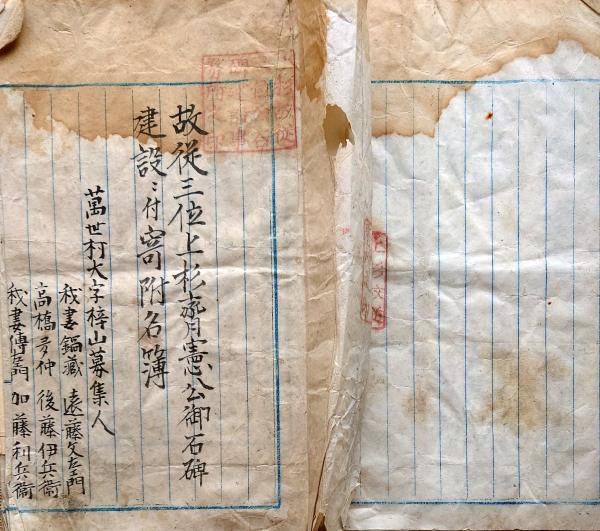 故従三位上杉斉憲公御石碑
建設ニ付寄附名簿
萬世村大字梓山募集人
我妻鍋蔵 遠藤文左エ門
高橋多仲 後藤伊兵衛
我妻傳 加藤利兵衛